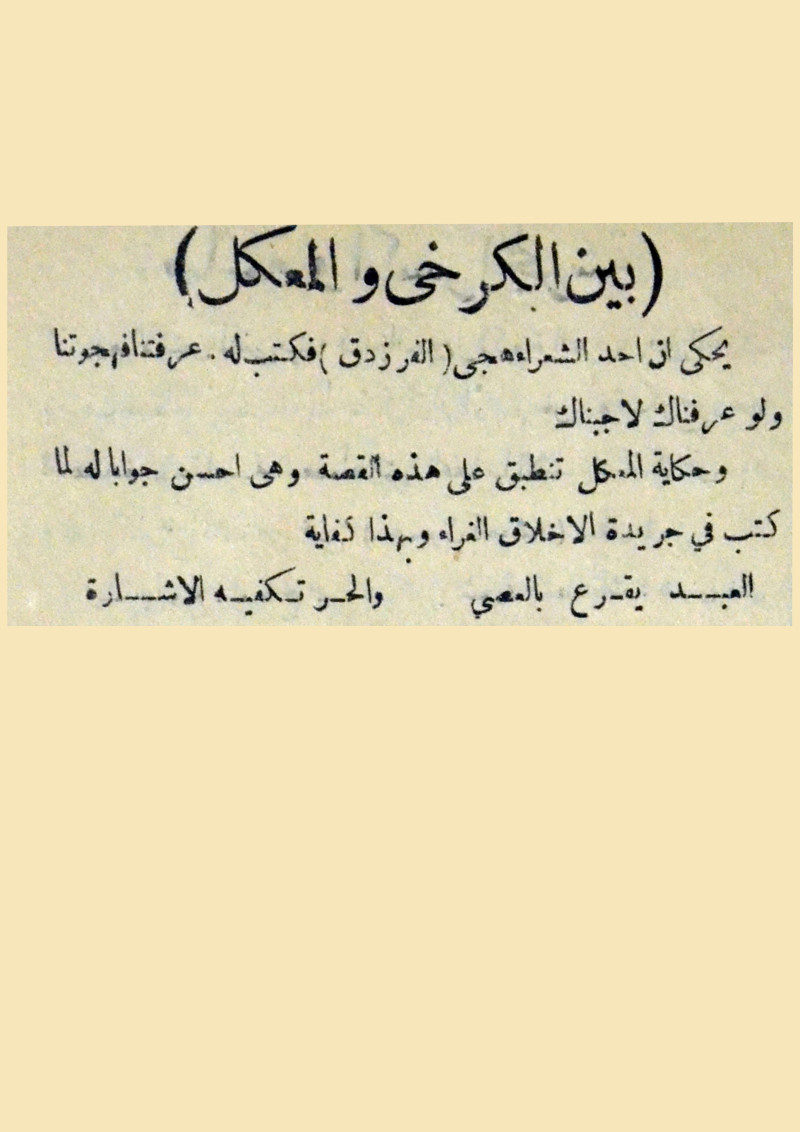 (بين الكرخى والمعكل)
يحكى ان احد الشعراء هجى (الفرزدق) فكتب له . عرفتنا فهجوتنا
ولو عرفناك لاجبناك
وحكاية المعكل تنطبق على هذه القصة وهى احسن جوابا له لما
كتب في جريدة الاخلاق الغراء وبهذا كفاية
العبــد يقـرع بالعصي والحـر تـكفيـه الاشـــارة